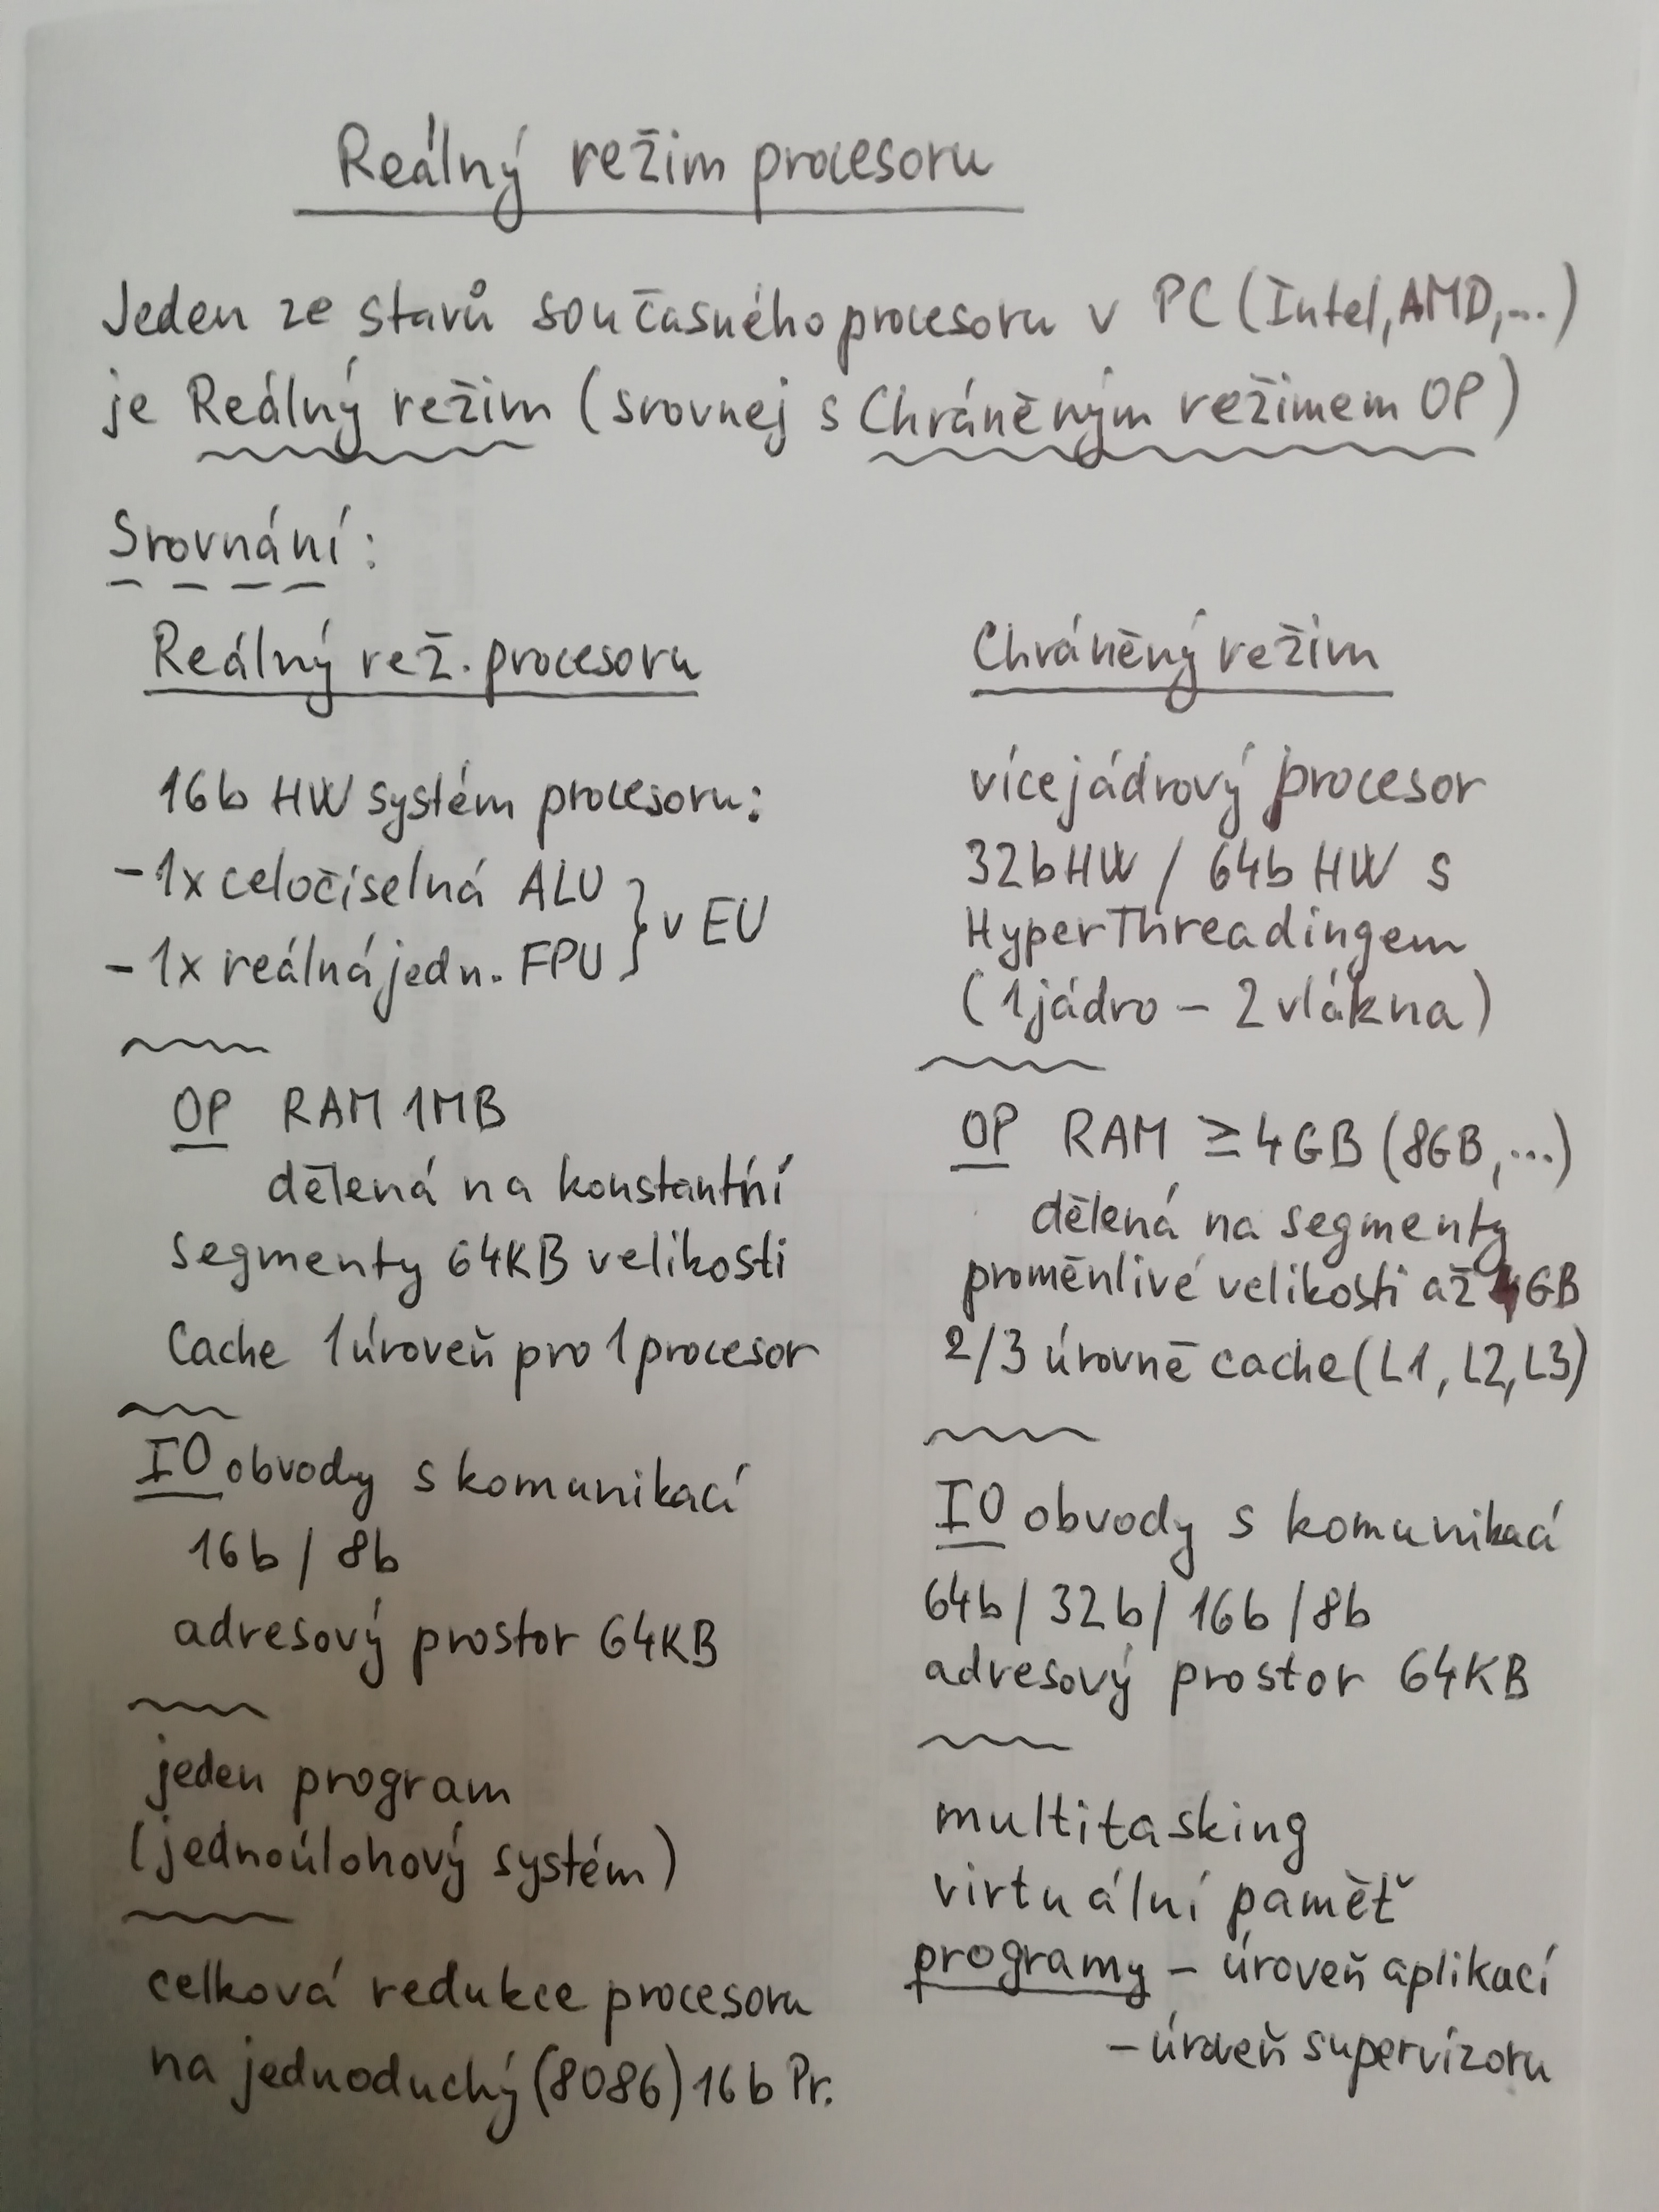 Reálný režim procesoru
Jeden ze stavů současného procesoru v PC (Intel, AMD,...)
je Reálný režim (srovnej s Chráněným režimem OP)
Srovnání:
Reálný rež. procesoru
16b HW systém procesoru:
-1x celočíselná ALU
-1x reálná jedn. FPU } v EU
OP RAM 1MB
dělená na konstantní
segmenty 64KB velikosti
Cache 1 úroveň pro 1 procesor
IO obvody s komunikací
16b / 8b
adresový prostor 64KB
jeden program
(jednoúlohový systém)
celková redukce procesoru
na jednoduchý (8086) 16b Pr.
Chráněný režim
vícejádrový procesor
32b HW / 64b HW s
HyperThreadingem
(1 jádro - 2 vlákna)
OP RAM ≥ 4GB (8GB,...)
dělená na segmenty
proměnlivé velikosti až 4GB
2/3 úrovně cache (L1, L2, L3)
IO obvody s komunikací
64b / 32b / 16b / 8b
adresový prostor 64KB
multitasking
virtuální paměť
programy - úroveň aplikací
- úroveň supervizoru